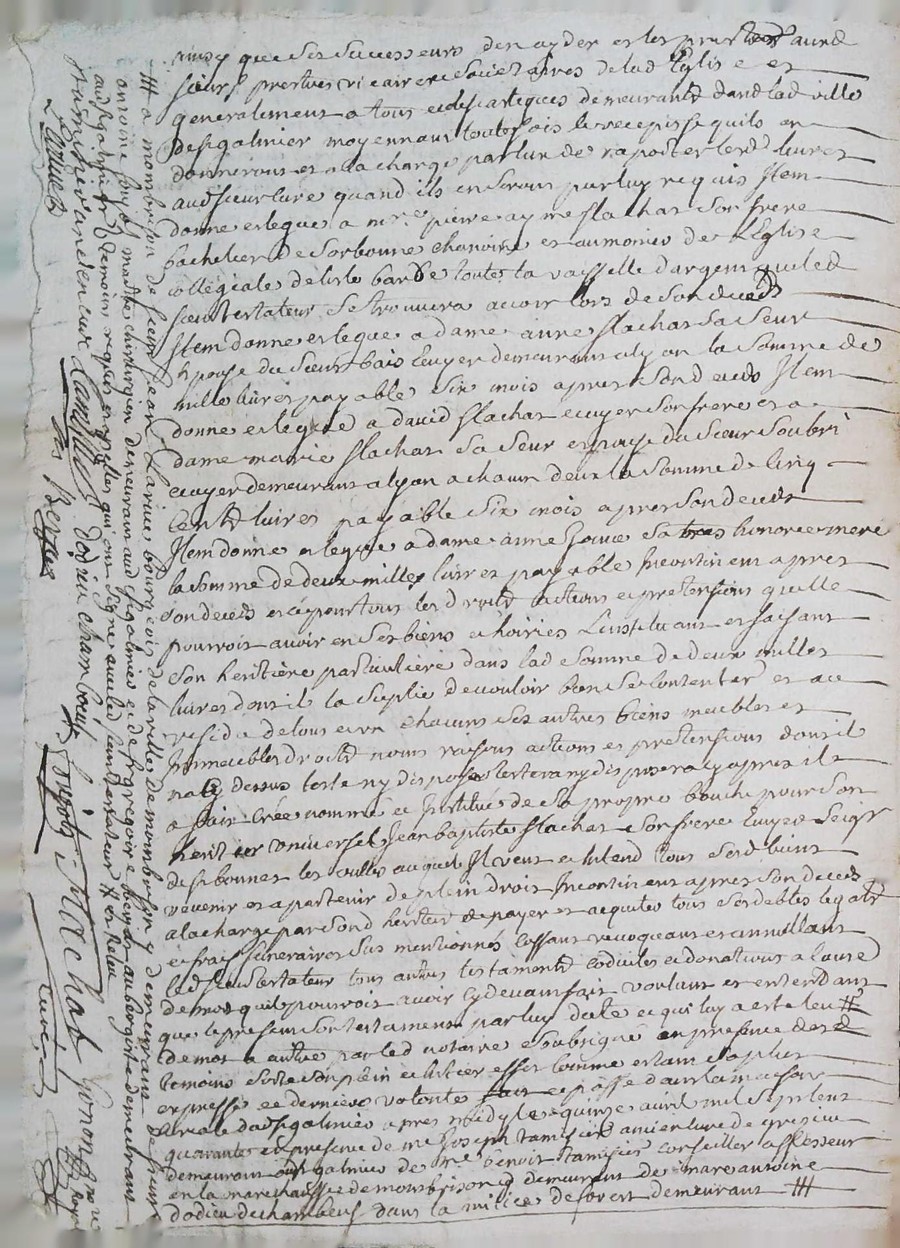 ainsy que ses successeurs den ayder et les prester aux d
sieurs prestres vicaire et societaires de lad Eglise et
generalement a tous ecclesiastiques demeurants dans lad ville
de st galmier moyennant toutesfois le recepisse quils en
donneront et a la charge par lun de raporter lesd livres
aud sieur cure quand ils en seront par luy requis Item
donne et legue a mre pierre aymé flachat son frere
bachelier de Sorbonne chanoine et aumonier de l'Eglise
collégiale de lisle barbe toute la vaisselle dargent que led
sieur testateur se trouvera avoir lors de son deceds
Item donne et legue a dame anne flachat sa seur
Epouse du sieur bais Ecuyer demeurant a lyon la somme de
mille livres payable six mois apres son deceds Item
donne et legue a david flachat ecuyer son frere et a
dame marie flachat sa seur epouse du sieur soubri
ecuyer demeurant a lyon a chacun deux la somme de cinq
cents livres payable six mois apres son deceds
Item donne et legue a dame anne sa tres honorée mere
la somme de deux milles livres payable Incontinent apres
son deceds et ce pour tous les droits actions et pretensions quelle
pourroit avoir en ses biens et hoiries L'instituant et faisant
son heritiere particuliere dans lad somme de deux milles
livres dont il la suplie de vouloir bien se contenter et au
residu de tous et un chacuns ses autres biens meubles et
Immeubles droits noms raisons actions et pretensions dont il
na cy dessus testé ny disposé testera ny disposera cy apres il
a fait créé nommé et Institué de sa propre bouche pour son
heritier universel Jean baptiste flachat son frere Ecuyer Seigr
de st bonnet les oulles auquel Il veut et Intend tous sesd biens
venir et apartenir de plein droit Incontinent apres son deceds
a la charge par sond heritier de payer et acquiter tous ses debtes legats
et frais funeraires sus mentionnés cassant revoquant et annullant
led sieur testateur tous autres testaments codiciles et donations a cause
de mort quil pourroit avoir cy devant fait voulant et entendant
que le present son testament par luy dicté et qui luy a esté leu #
de mot a autre par led notaire soubsigné en presence desd
temoins sorte son plein et entier effet comme estant sa plus
expresse et derniere volonté fait et passé dans la maison
curiale dud st galmier apres midy le quinze avril mil sept cent
quarante en presence de me Joseph tamisier ancien curé de grezieu
demeurant aud st galmier de me benoit tamisier conseiller assesseur
en la marechaussée de montbrison y demeurant de marc antoine
dodieu de chambeuf dans la milice de forest demeurant #
# a montbrison de sieur Jean Larive bourgeois de la ville de montbrison y demeurant de sieur
antoine maitre chirurgien demeurant aud st galmier et de gregoire aubergiste demeurant
aud st galmier temoins requis et apellés qui ont signé avec led sieur testateur #
tamisier ancien curé tamisier dodieu chambeuf flachat
Larive